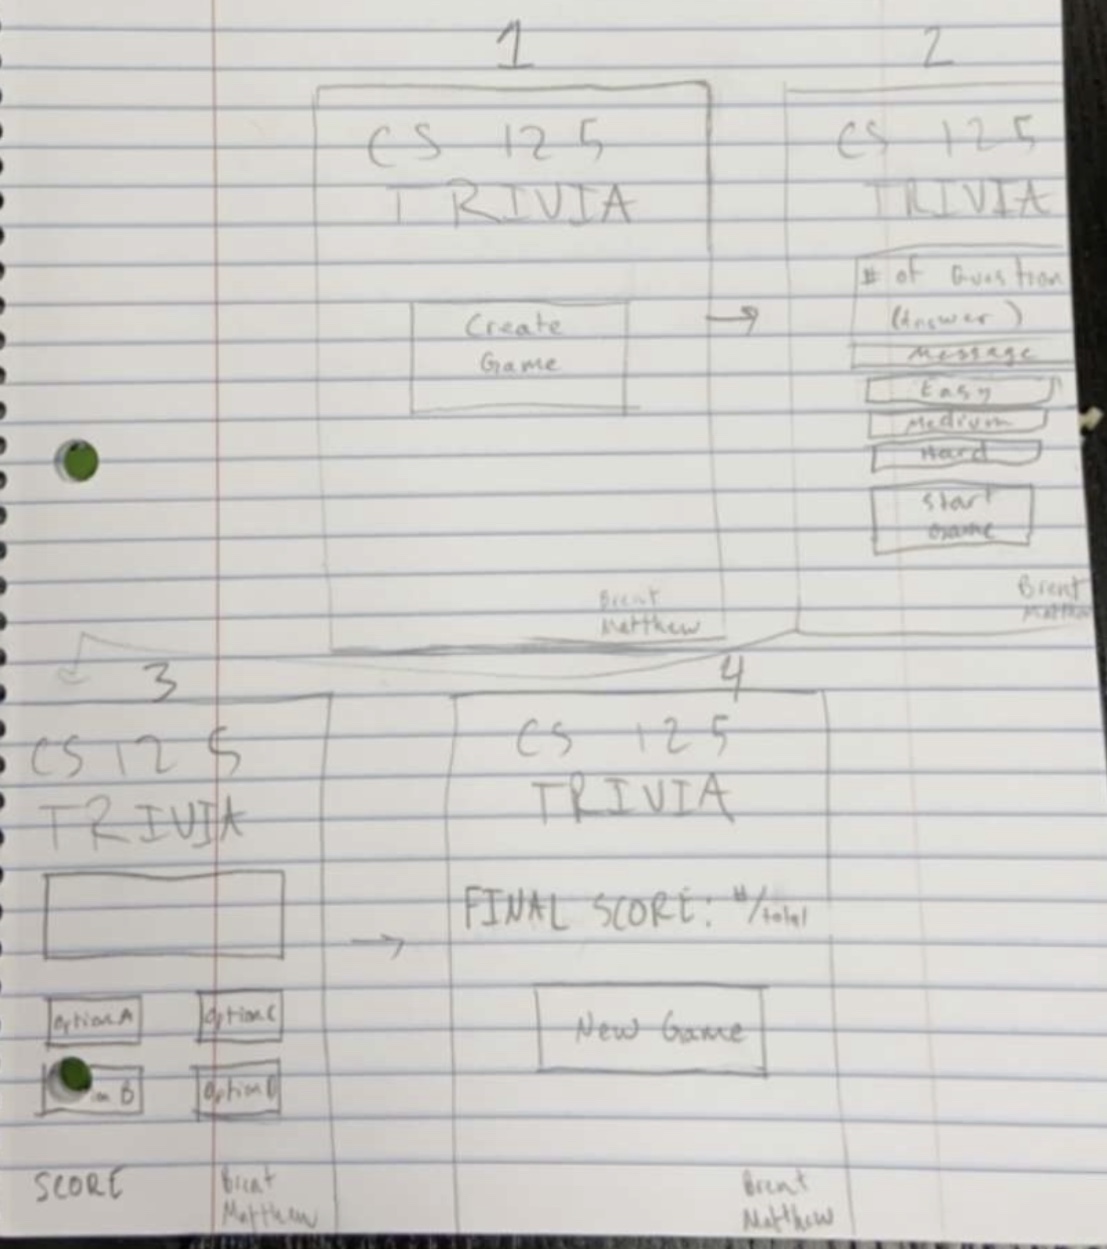 1
CS 125
TRIVIA
Create
Game
Brent
Matthew
2
CS 125
TRIVIA
# of Question
(Answer)
Message
Easy
Medium
Hard
Start
Game
Brent
Matthew
3
CS 125
TRIVIA
Option A
Option C
on B
Option D
SCORE
Brent
Matthew
4
CS 125
TRIVIA
FINAL SCORE: #/total
New Game
Brent
Matthew